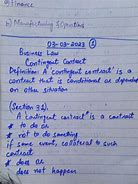 a) Finance
b) Manufacturing & Operations
03-03-2023 (1)
Business Law
Contingent Contract
Definition: A contingent contract is a
contract that is conditional or dependent
on other situation
(Section 31)
A contingent contract is a contract
# to do or
# not to do something
if some event, collateral to such
contract
# does or
does not happen